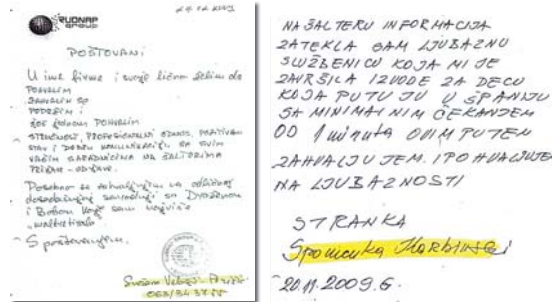 RUDNAP
GROUP
POŠTOVANI
U ime firme i svoje lično želim da
POHVALIM
ZAHVALIM SE
PODRŽIM i
JOŠ JEDNOM POHVALIM
STRUČNOST, PROFESIONALNI ODNOS, POZITIVAN
STAV I DOBRU KOMUNIKACIJU SA SVIM
VAŠIM SARADNICIMA NA ŠALTERIMA
PRIJAVE - ODJAVE.
Posebno se zahvaljujem na odličnoj
dosadašnjoj saradnji sa
i sam najviše
S poštovanjem.
NA ŠALTERU INFORMACIJA
ZATEKLA SAM LJUBAZNU
SLUŽBENICU KOJA MI JE
ZAVRŠILA IZVODE ZA DECU
KOJA PUTUJU U ŠPANIJU
SA MINIMALNIM ČEKANJEM
OD 1 minuta OVIM PUTEM
ZAHVALJUJEM. I POHVALJUJEM
NA LJUBAZNOSTI
STRANKA
Spomenka
20.11.2009.G.